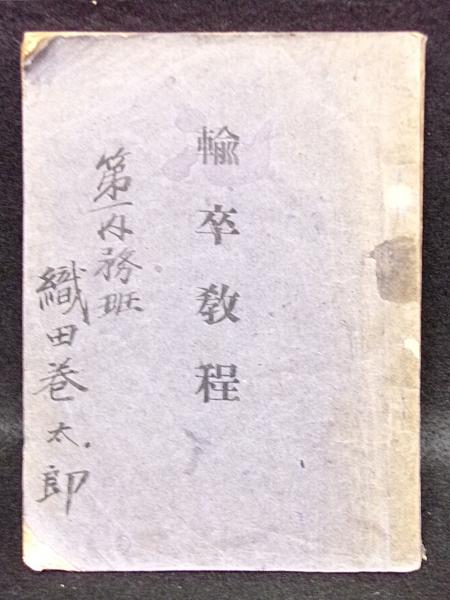 輸卒教程
第一内務班
織田巻太郎